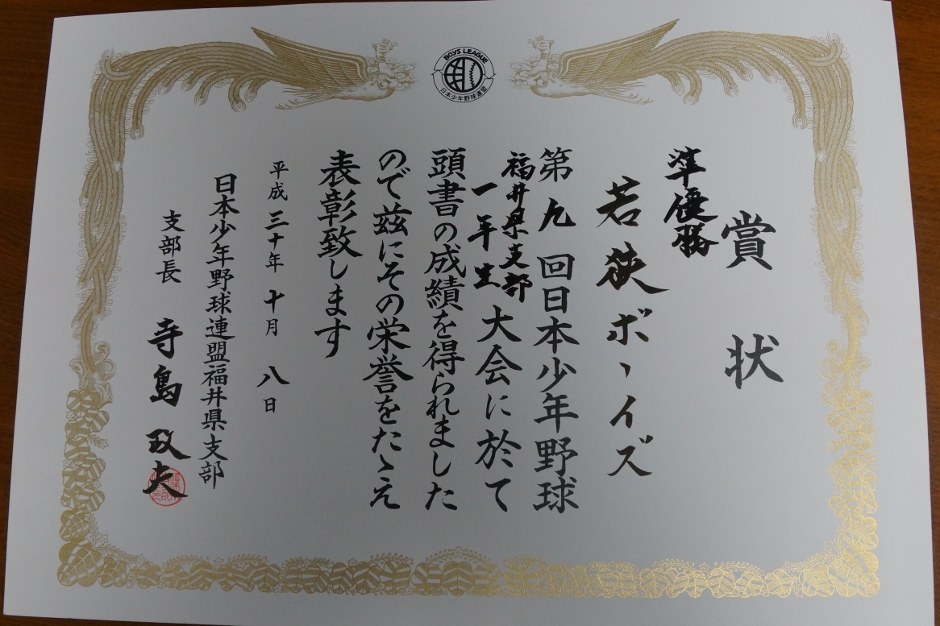 BOYS LEAGUE
日本少年野球連盟
賞状
準優勝
若狭ボーイズ
第九回日本少年野球
福井県支部
一年生大会に於て
頭書の成績を得られました
ので茲にその栄誉をたゝえ
表彰致します
平成三十年十月八日
日本少年野球連盟福井県支部
支部長 寺島政夫